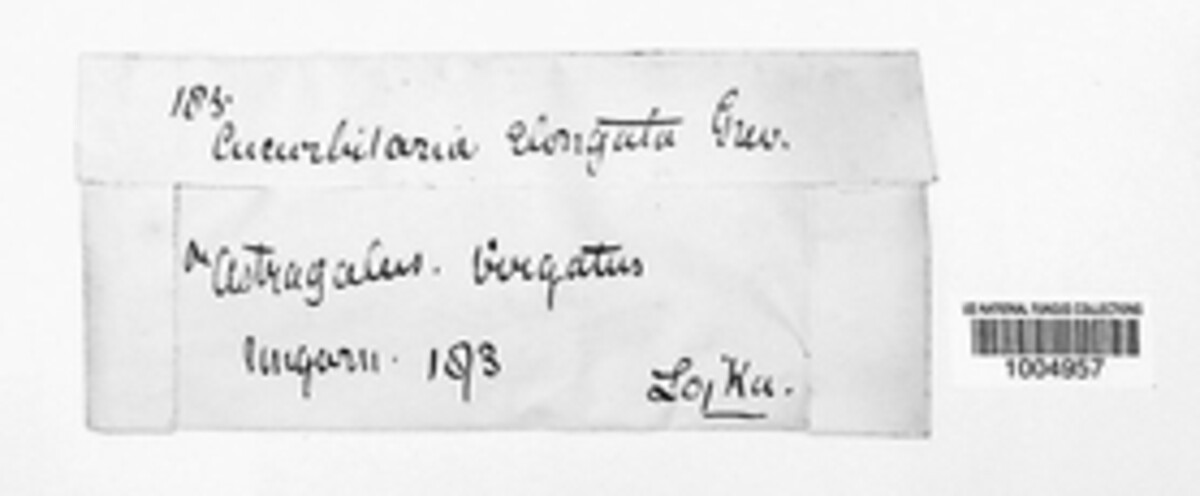 Cucurbitaria elongata Grev.
On Astragalus. Virgatus
Ungarn.
Lojka.
US NATIONAL FUNGUS COLLECTIONS
1004957